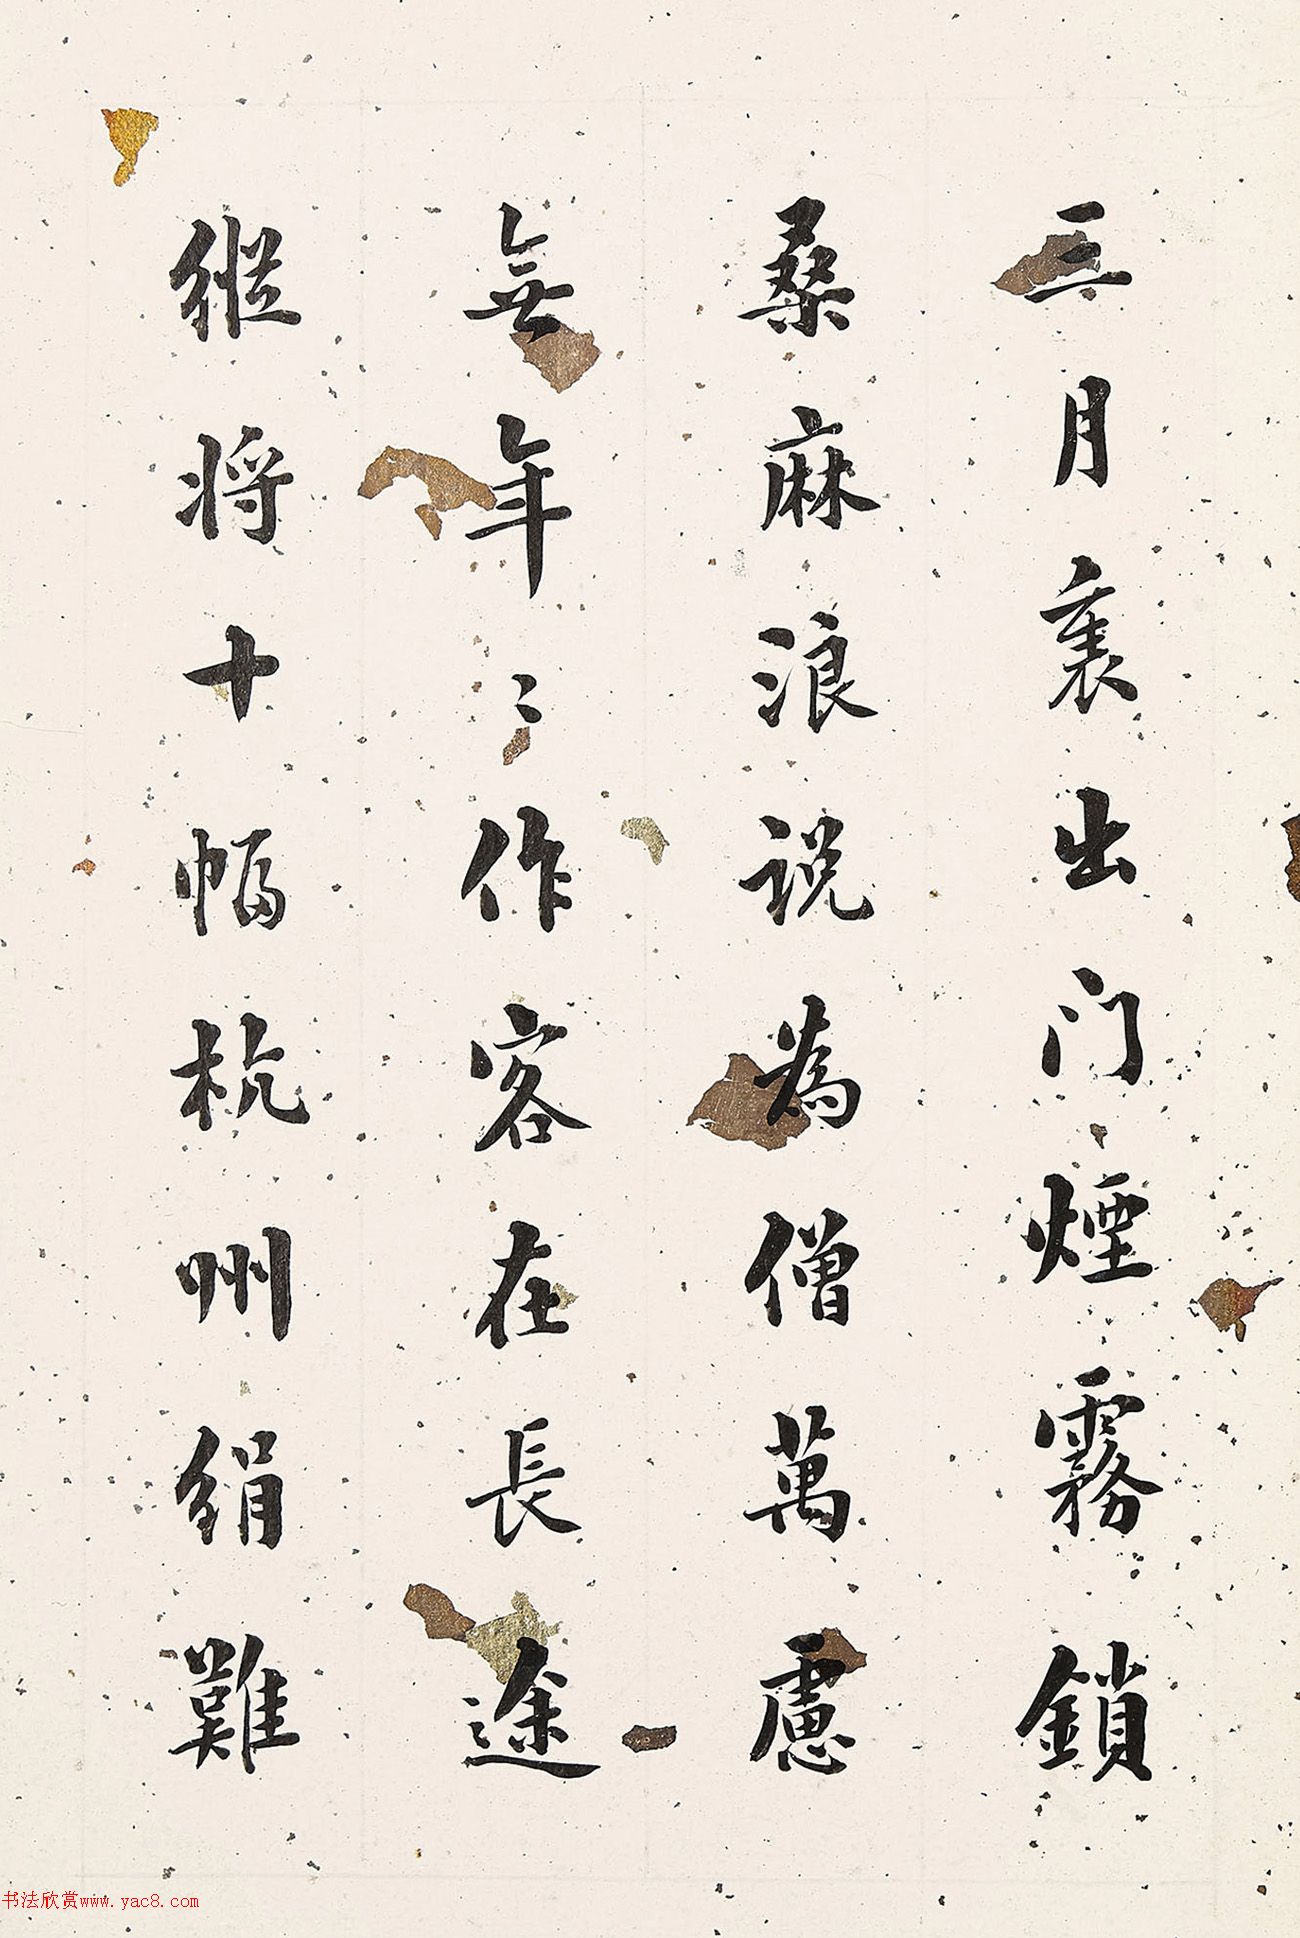 三月裏出门煙霧鎖
桑麻浪说為僧萬慮
無年〻作客在長途
縱将十幅杭州絹難
书法欣赏www.yac8.com